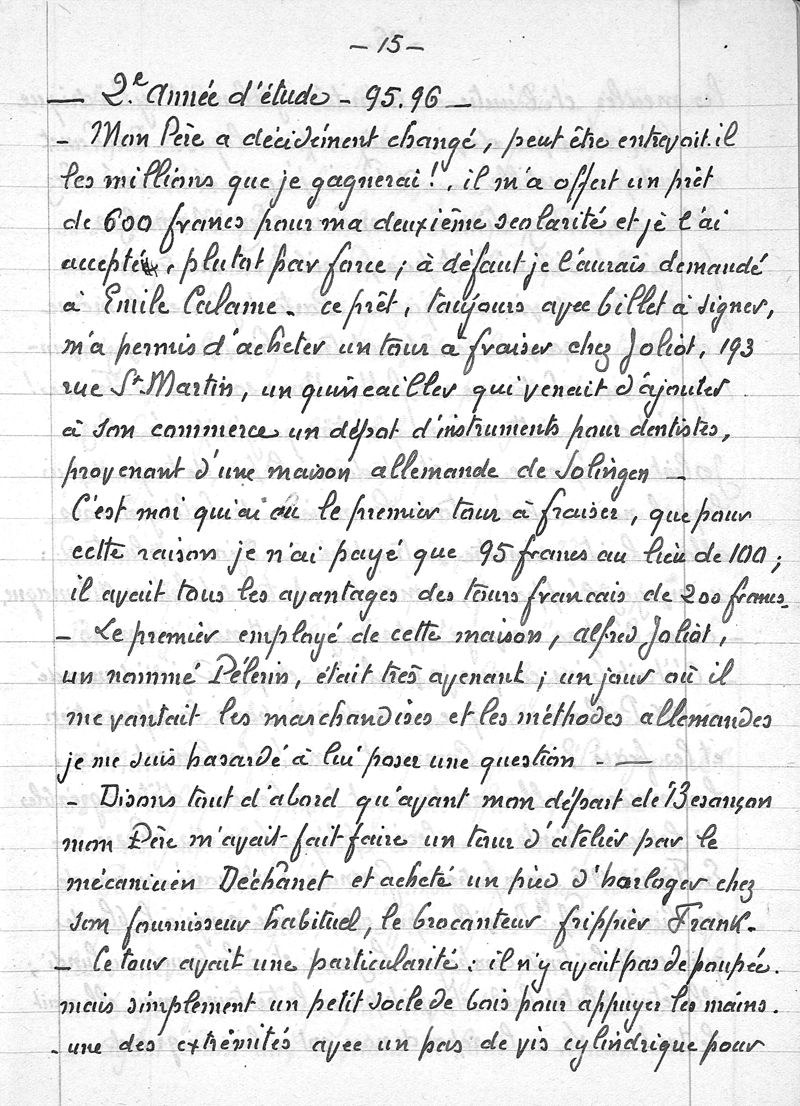 - 15 -
— 2.e Année d'étude - 95.96 —
- Mon Père a décidément changé, peut être entrevoit.il
les millions que je gagnerai !, il m'a offert un prêt
de 600 francs pour ma deuxième scolarité et je l'ai
accepté, plutot par force ; à défaut je l'aurais demandé
à Emile Calame. ce prêt, toujours avec billet à signer,
m'a permis d'acheter un tour à fraiser chez Joliot, 193
rue St. Martin, un quincailler qui venait d'ajouter
à son commerce un dépot d'instruments pour dentistes,
provenant d'une maison allemande de Solingen —
C'est moi qui ai eu le premier tour à fraiser, que pour
cette raison je n'ai payé que 95 francs au lieu de 100 ;
il avait tous les avantages des tours francais de 200 francs.
- Le premier employé de cette maison, Alfred Joliot,
un nommé Pélerin, était très avenant ; un jour où il
me vantait les marchandises et les méthodes allemandes
je me suis hasardé à lui poser une question - —
- Disons tout d'abord qu'avant mon départ de Besançon
mon Père m'avait fait faire un tour d'atelier par le
mécanicien Déchanet et acheté un pied d'horloger chez
son fournisseur habituel, le brocanteur frippier Frank.
- Ce tour avait une particularité : il n'y avait pas de poupée.
mais simplement un petit socle de bois pour appuyer les mains.
- une des extrémités avec un pas de vis cylindrique pour